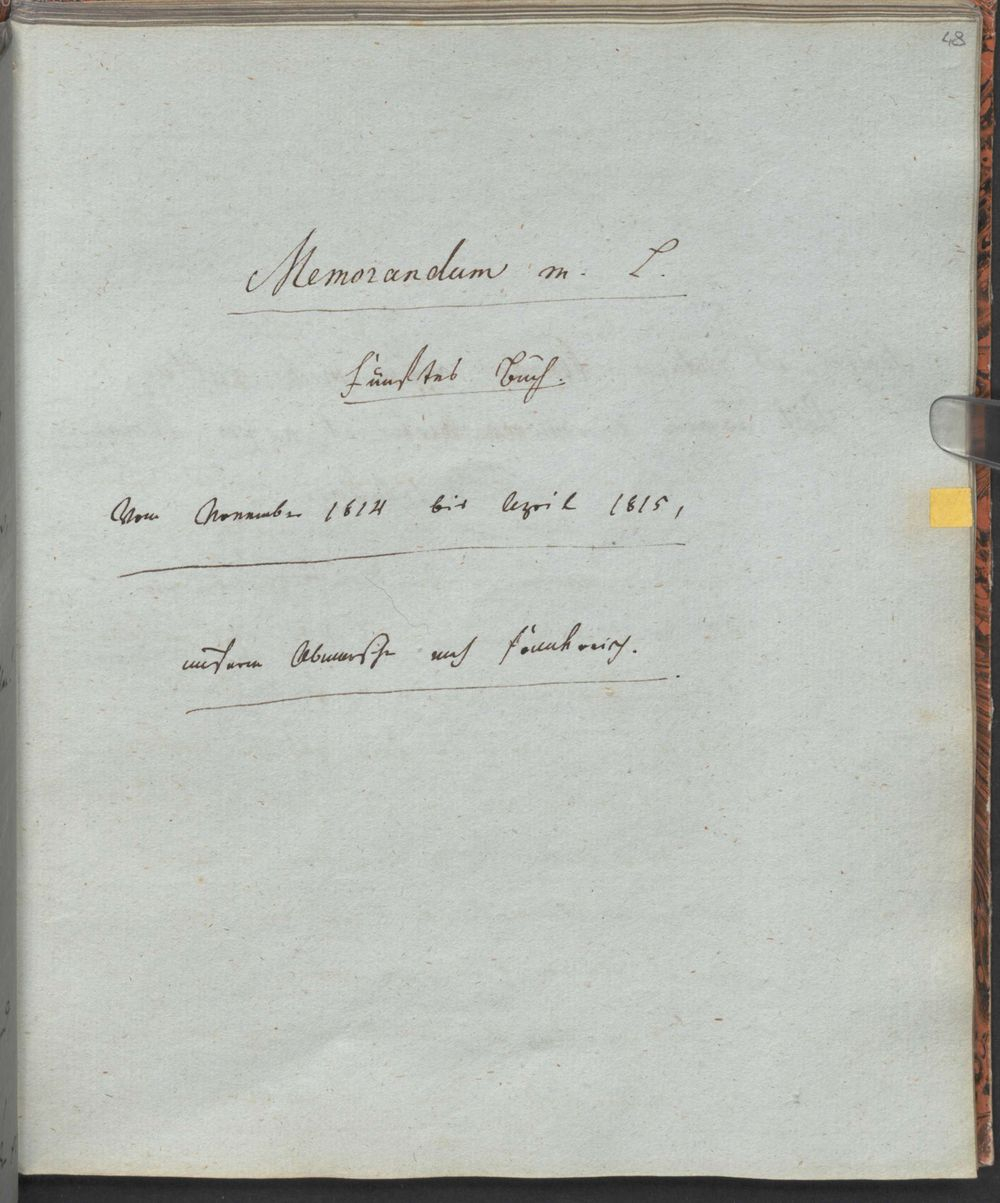 48
Memorandum m. L.
Fünftes Buch.
Vom November 1814 bis April 1815,
unserm Abmarsche nach Frankreich.